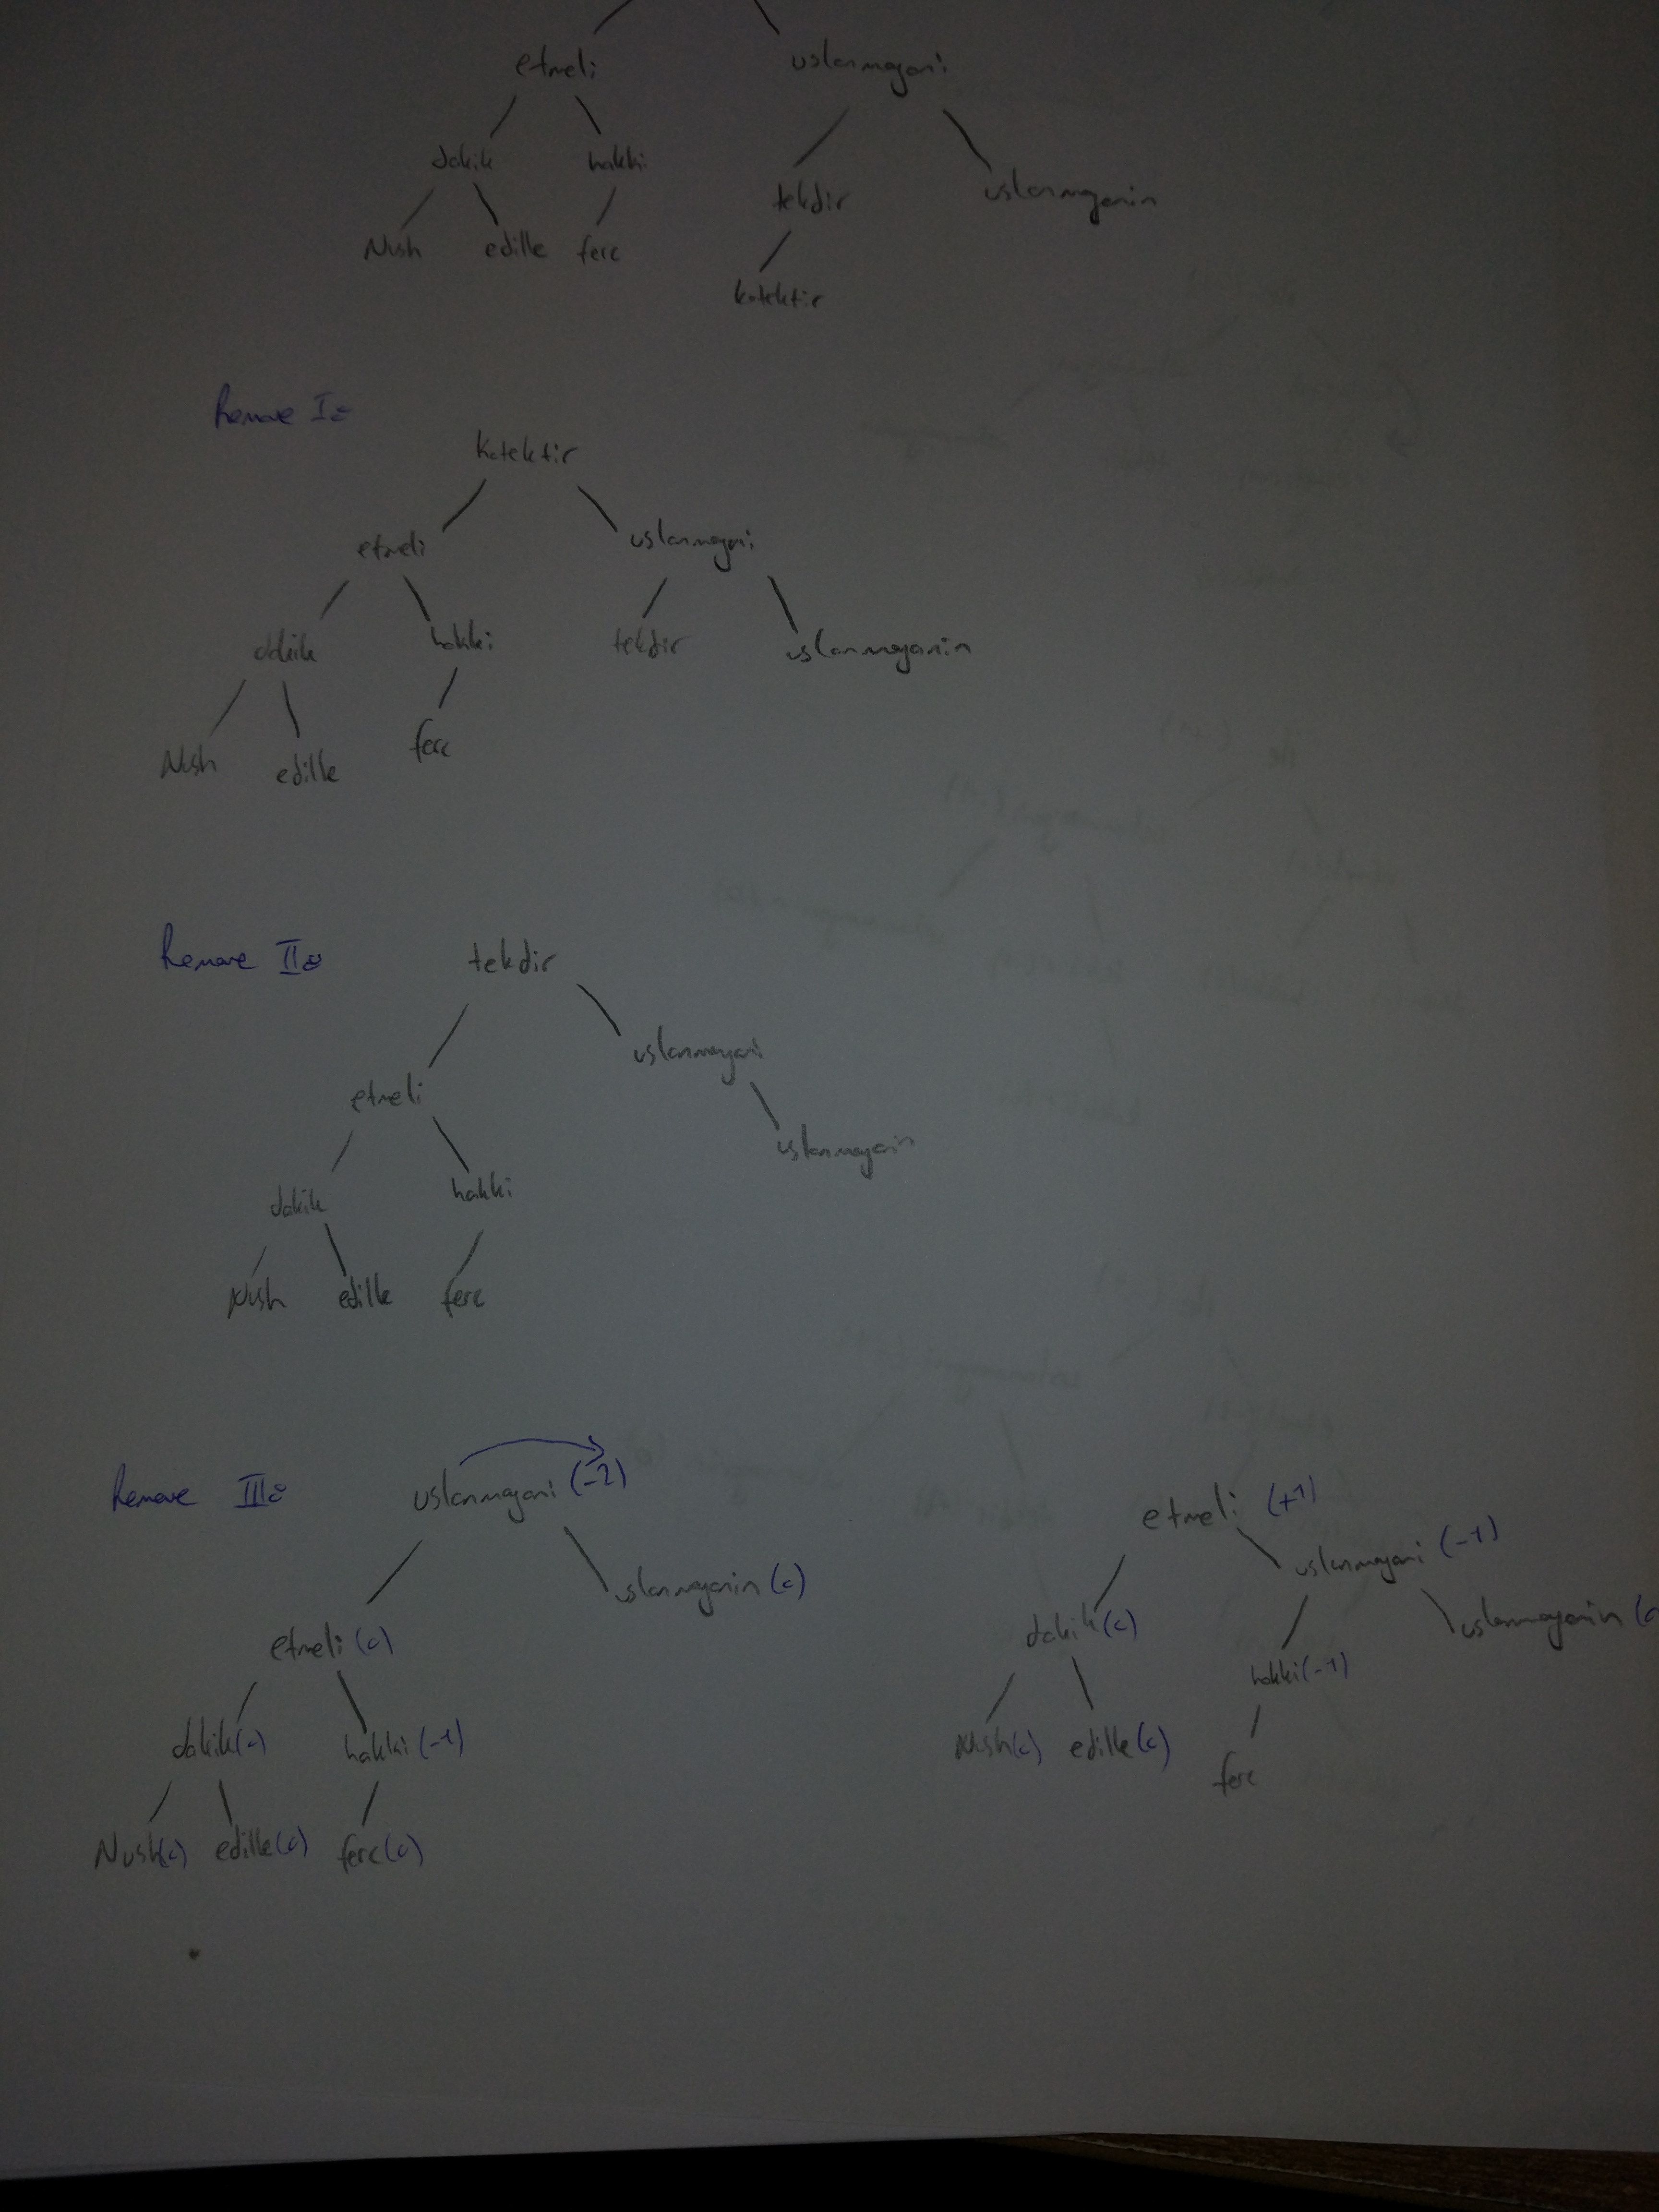 etmeli uslanmayani
dakik hakki
tekdir uslanmayanin
Nush edille ferc
kotektir
Remove I:
kotektir
etmeli uslanmayani
dakik hakki tekdir uslanmayanin
Nush edille ferc
Remove II:
tekdir
uslanmayani
etmeli
uslanmayanin
dakik hakki
Nush edille ferc
Remove III:
uslanmayani (-2)
uslanmayanin (0)
etmeli (0)
dakik (0) hakki (-1)
Nush (0) edille (0) ferc (0)
etmeli (+1)
uslanmayani (-1)
dakik (0) uslanmayanin
hakki (-1)
Nush (0) edille (0)
ferc